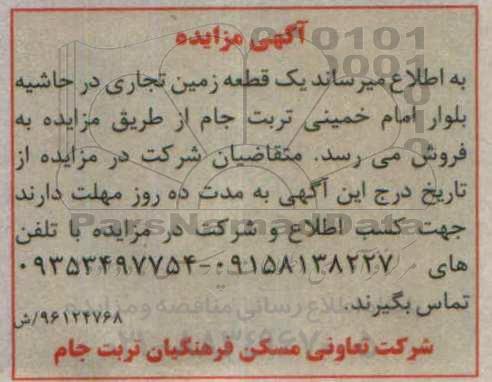 آگهی مزایده
به اطلاع میرساند یک قطعه زمین تجاری در حاشیه
بلوار امام خمینی تربت جام از طریق مزایده به
فروش می رسد. متقاضیان شرکت در مزایده از
تاریخ درج این آگهی به مدت ده روز مهلت دارند
جهت کسب اطلاع و شرکت در مزایده با تلفن
های ۰۹۱۵۸۱۳۸۲۲۷-۰۹۳۵۳۴۹۷۷۵۴
تماس بگیرند.
۹۶۱۲۴۷۶۸/ش
شرکت تعاونی مسکن فرهنگیان تربت جام
ParsNamadData